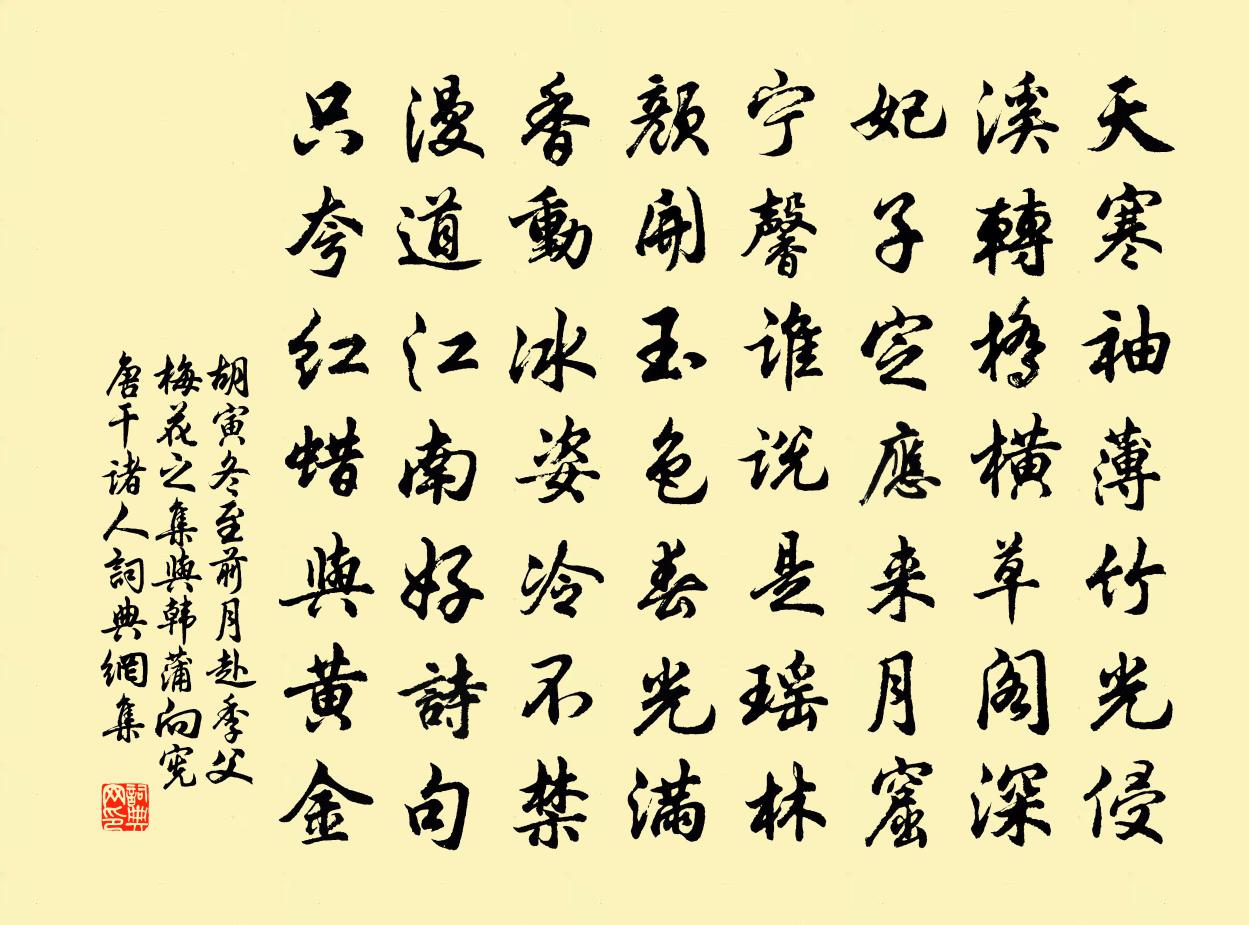 天寒袖薄竹光侵
溪轉橋橫草阁深
妃子定應来月窟
宁馨谁说是瑶林
颜開玉色春光满
香動冰姿冷不禁
漫道江南好詩句
只夸红蜡與黄金
胡寅冬至前月赴季父
梅花之集與韩蒲向宪
唐干诸人詞典網集
詞典网印